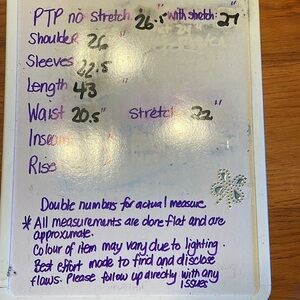 PTP no stretch 26.5" with stretch: 27
Shoulder 26"
Sleeves 22.5
Length 43"
Waist 20.5" Stretch 22"
Inseam "
Rise
Double numbers for actual measure
* All measurements are done flat and are
approximate.
Colour of item may vary due to lighting.
Best effort made to find and disclose
flaws. Please follow up directly with any
issues